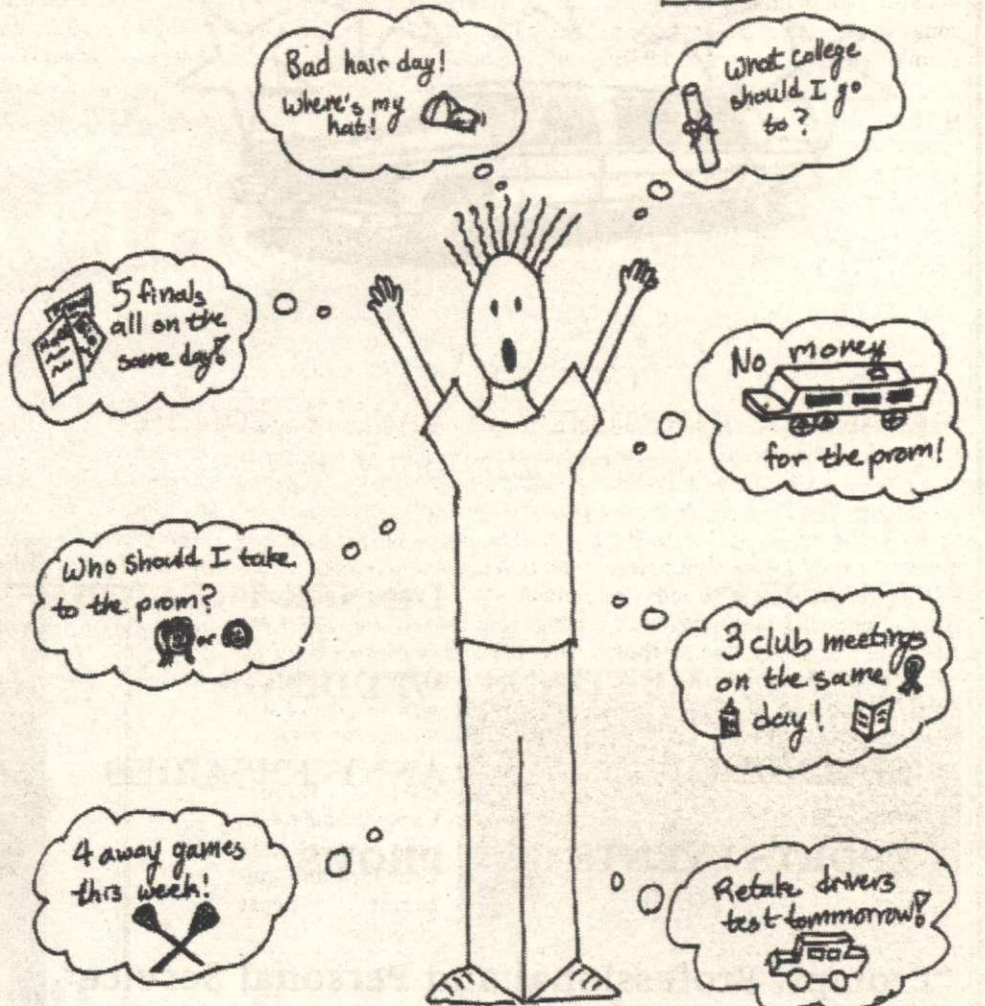 Bad hair day!
Where's my
hat!
What college
should I go
to?
5 finals
all on the
same day!
No money
for the prom!
Who should I take
to the prom?
or
3 club meetings
on the same
day!
4 away games
this week!
Retake drivers
test tommorrow!